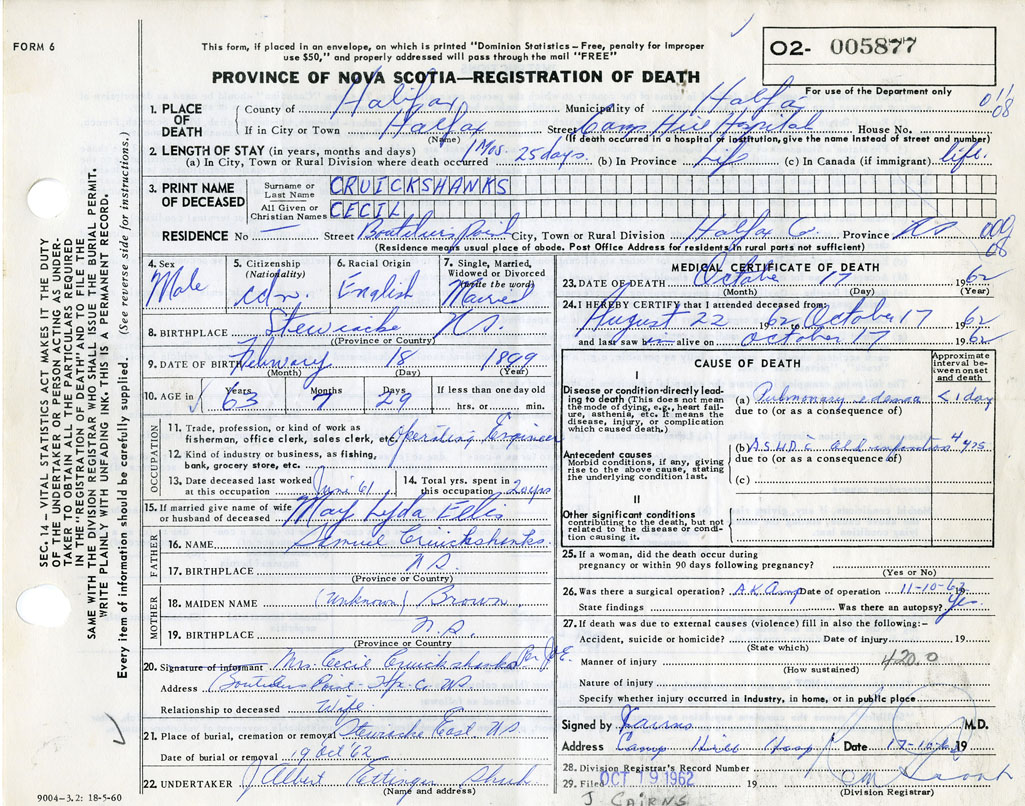 FORM 6
This form, if placed in an envelope, on which is printed "Dominion Statistics – Free, penalty for improper
use $50," and properly addressed will pass through the mail "FREE"
O2- 005877
PROVINCE OF NOVA SCOTIA—REGISTRATION OF DEATH
For use of the Department only
1. PLACE OF DEATH
County of Halifax Municipality of Halfax
If in City or Town Halfax Street Camp Hill Hospital House No.
(Name) (If death occurred in a hospital or institution, give the name instead of street and number)
2. LENGTH OF STAY (in years, months and days)
(a) In City, Town or Rural Division where death occurred 1 Mos. 25 days. (b) In Province Life (c) In Canada (if immigrant) life.
3. PRINT NAME OF DECEASED
Surname or Last Name CRUICKSHANKS
All Given or Christian Names CECIL
RESIDENCE No — Street Boutiliers Point City, Town or Rural Division Halfax Co. Province NS
(Residence means usual place of abode. Post Office Address for residents in rural parts not sufficient)
4. Sex Male
5. Citizenship (Nationality) cdn.
6. Racial Origin English
7. Single, Married, Widowed or Divorced (write the word) Married
8. BIRTHPLACE Stewiacke NS.
(Province or Country)
9. DATE OF BIRTH February 18 1899
(Month) (Day) (Year)
10. AGE in Years 63 Months 7 Days 29 If less than one day old hrs. or min.
OCCUPATION
11. Trade, profession, or kind of work as
fisherman, office clerk, sales clerk, etc. Operating Engineer
12. Kind of industry or business, as fishing,
bank, grocery store, etc.
13. Date deceased last worked at this occupation June 61
14. Total yrs. spent in this occupation 20 yrs
15. If married give name of wife or husband of deceased Mary Lyda Ellis
FATHER
16. NAME Samuel Cruickshanks.
17. BIRTHPLACE NS.
(Province or Country)
MOTHER
18. MAIDEN NAME (Unknown) Brown
19. BIRTHPLACE N.S.
(Province or Country)
20. Signature of informant Mrs. Cecil Cruickshanks Per
Address Boutiliers Point Hfx. Co NS.
Relationship to deceased Wife
21. Place of burial, cremation or removal Stewiacke East NS
Date of burial or removal 19 Oct '62
22. UNDERTAKER J Albert Ettinger
(Name and address)
9004-3.2: 18-5-60
MEDICAL CERTIFICATE OF DEATH
23. DATE OF DEATH October 17 1962
(Month) (Day) (Year)
24. I HEREBY CERTIFY that I attended deceased from:
August 22 1962 to October 17 1962
and last saw alive on October 17 1962
CAUSE OF DEATH
Approximate interval between onset and death
I
Disease or condition directly leading to death (This does not mean the mode of dying, e.g., heart failure, asthenia, etc. It means the disease, injury, or complication which caused death.)
(a) Pulmonary edema < 1 day
due to (or as a consequence of)
Antecedent causes
Morbid conditions, if any, giving rise to the above cause, stating the underlying condition last.
(b) A.S.H.D. old infarction 4 yrs
due to (or as a consequence of)
(c)
II
Other significant conditions
contributing to the death, but not related to the disease or condition causing it.
25. If a woman, did the death occur during
pregnancy or within 90 days following pregnancy?
(Yes or No)
26. Was there a surgical operation? A K Amp Date of operation 11-10-62 19
State findings Was there an autopsy? Yes.
27. If death was due to external causes (violence) fill in also the following:–
Accident, suicide or homicide? Date of injury 19
(State which)
Manner of injury 420.0
(How sustained)
Nature of injury
Specify whether injury occurred in industry, in home, or in public place
Signed by J Cairns M.D.
Address Camp Hill Hosp Date 17-10-62 19
28. Division Registrar's Record Number
29. Filed OCT 19 1962 19
(Division Registrar)
J CAIRNS
SEC. 14 – VITAL STATISTICS ACT MAKES IT THE DUTY
OF THE UNDERTAKER OR PERSON ACTING AS UNDER-
TAKER TO OBTAIN ALL THE PARTICULARS REQUIRED
IN THE "REGISTRATION OF DEATH" AND TO FILE THE
SAME WITH THE DIVISION REGISTRAR WHO SHALL ISSUE THE BURIAL PERMIT.
WRITE PLAINLY WITH UNFADING INK. THIS IS A PERMANENT RECORD.
Every item of information should be carefully supplied. (See reverse side for instructions.)